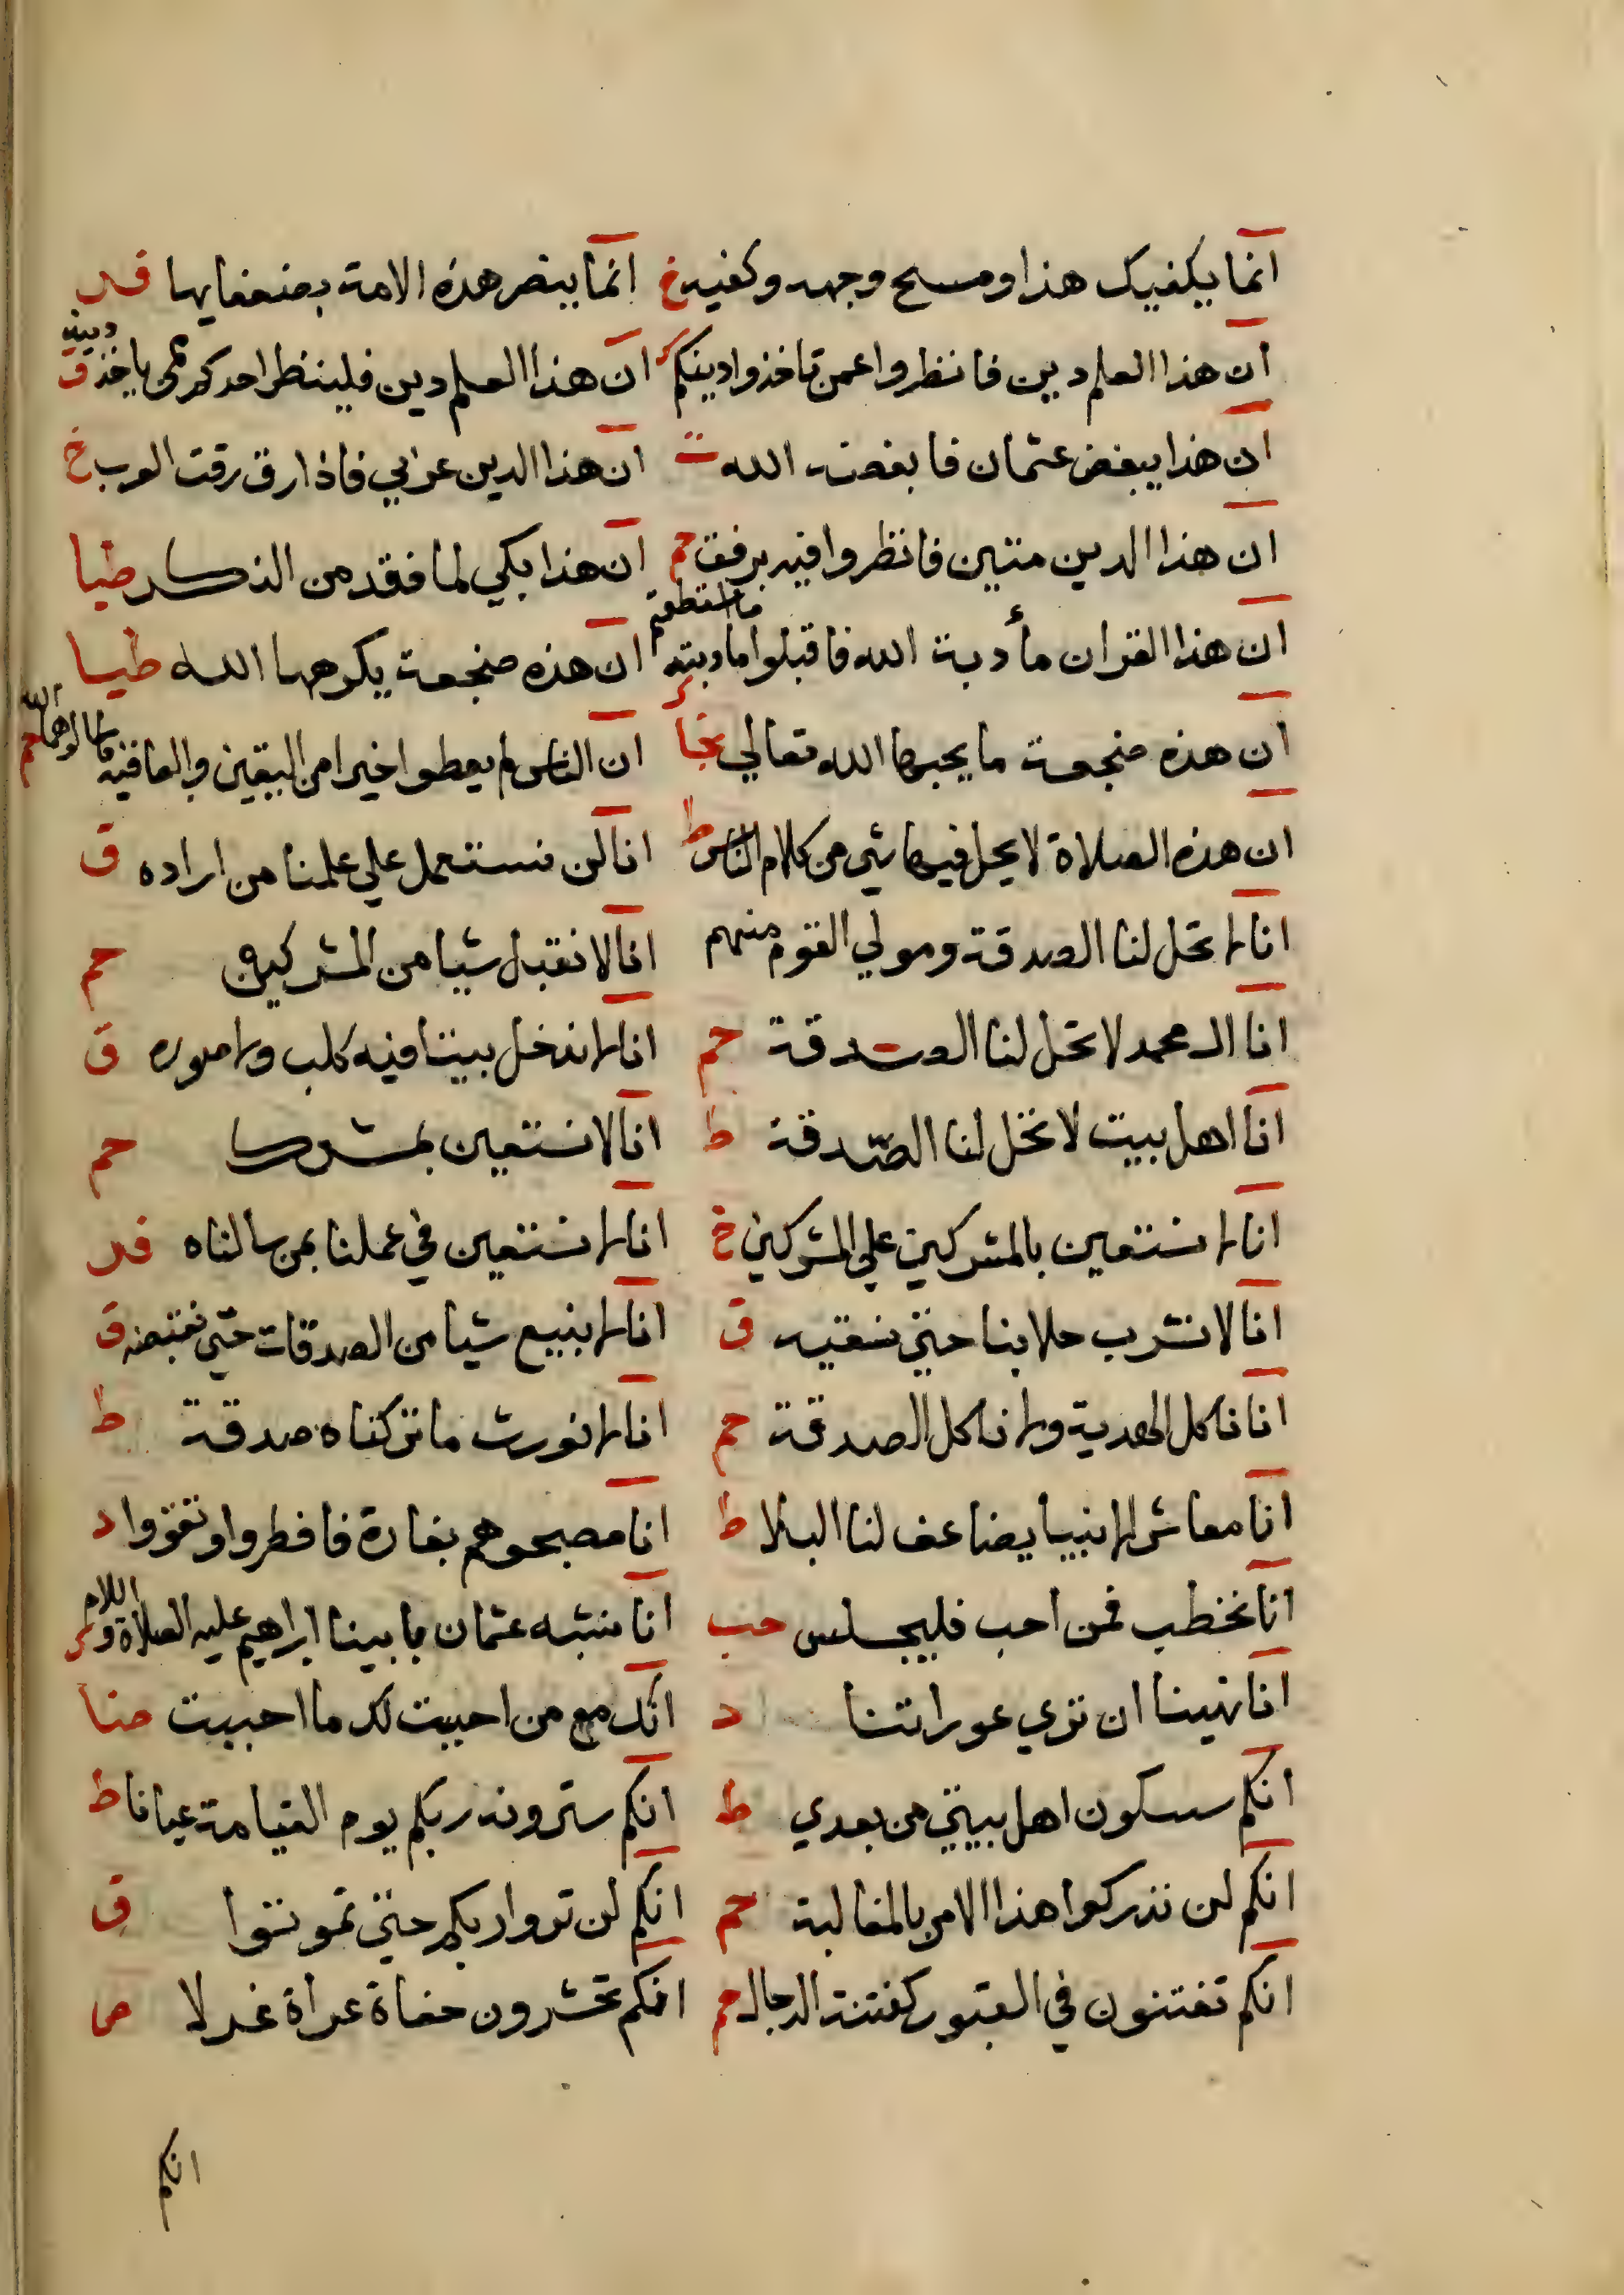 انما يكفيك هذا ومسح وجهه وكفيه خ انما ينصر هذه الامة بضعفايها
ان هذا العلم دين فانظروا عمن تاخذوا دينكم ك ان هذا العلم دين فلينظر احدكم ممن ياخذ دينه ق
ان هذا يبغض عثمان فابغضه الله ت ان هذا الدين عرابي فاذا رق رقت العرب خ
ان هذا الدين متين فانظروا فيه برفق حم ان هذا بكي لما فقد من الذكر طيا
ان هذا القران مأدبة الله فاقبلوا مادبته ما استطعتم ك ان هذه ضجعة يكرهها الله طيا
ان هذه ضجعة ما يحبها الله تعالي ان الناس لم يعطوا خيرا من اليقين والعافية حم
ان هذه الصلاة لا يحل فيها شي من كلام الناس ط انا لن نستعمل علي علمنا من اراده ق
انا لا تحل لنا الصدقة ومولي القوم منهم انا لا نقبل شيا من المشركين حم
انا ال محمد لا تحل لنا الصدقة حم انا لا ندخل بيتا فيه كلب ولا صوره ق
انا اهل بيت لا تحل لنا الصدقة ط انا لا نستعين بمشرك حم
انا لا نستعين بالمشركين علي المشركين خ انا لا نستعين في عملنا بمن سالناه
انا لا نشرب حلابنا حتي نسقيه ق انا لا نبيع شيا من الصدقات حتي نقبضه ق
انا ناكل الهدية ولا ناكل الصدقة حم انا لا نورث ما تركناه صدقة ط
انا معاش الانبيا يضاعف لنا البلا ط انا مصبحوهم بغارة فافطروا وتقووا د
انا نخطب فمن احب فليجلس انا نشبه عثمان بابينا ابراهيم عليه الصلاة والسلام
انا نهينا ان تري عوراتنا د انك مع من احببت لك ما احببت ضا
انكم ستكون اهل بيتي من بعدي ط انكم سترون ربكم يوم القيامة عيانا ط
انكم لن تدركوا هذا الامر بالمغالبة حم انكم لن تروا ربكم حتي تموتوا ق
انكم تفتنون في القبور كفتنة الدجال حم انكم تحشرون حفاة عراة غرلا
انكم